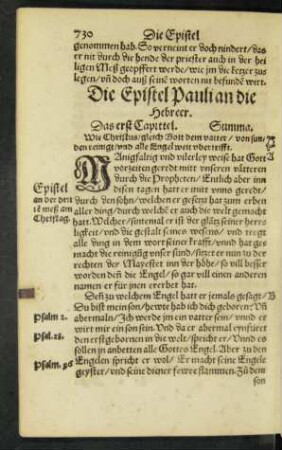 730 Die Epistel
genommen hab. So verneint er doch nindert/ das
er nit durch die hende der priester auch in der hei
ligen Meß geopffert werde/ wie jm die ketzer zus
legen/ vñ doch auß seinē worten nit befundē wirt.
Die Epistel Pauli an die
Hebreer.
Das erst Capittel. Summa.
Wie Christus/ gleich Gott dem vatter/ von sun/
den reinigt/ vnd alle Engel weit vbertrifft.
MAnigfaltig vnd vilerley weiß hat Gott A
vorzeiten geredt mitt vnseren vättern
durch die Propheten/ Entlich aber inn
disen tagen hatt er mitt vnns geredt/
durch den sohn/ welchen er gesetzt hat zum erben
aller ding/ durch welchē er auch die welt gemacht
hatt. Welcher/ sintemal er ist der glātz seiner herrli
gkeit/ vnd die gestalt seines wesens/ vnd tregt
alle ding in dem wort seiner krafft/ vnnd hat ges
macht die reinigūg vnser sünd/ sitzet er nun zu der
rechten der Mayestet inn der höhe/ so vil besser
worden deñ die Engel/ so gar vill einen anderen
namen er für jnen ererbet hat.
Deñ zu welchem Engel hatt er jemals gesagt/ B
Du bist mein son/ heute hab ich dich geboren? Vñ
abermaln/ Ich werde jm ein vatter sein/ vnnd er
wirt mir ein son sein. Vnd da er abermal eynfüret
den erstgebornen in die welt/ spricht er/ Vnnd es
sollen jn anbetten alle Gottes Engel. Aber zu den
Engelen spricht er wol/ Er macht seine Engele
geyster/ vnd seine diener fewrestammen. Zů dem
son
Epistel
an der drit
tē meß am
Christag.
Psalm 2.
Psalm. 96